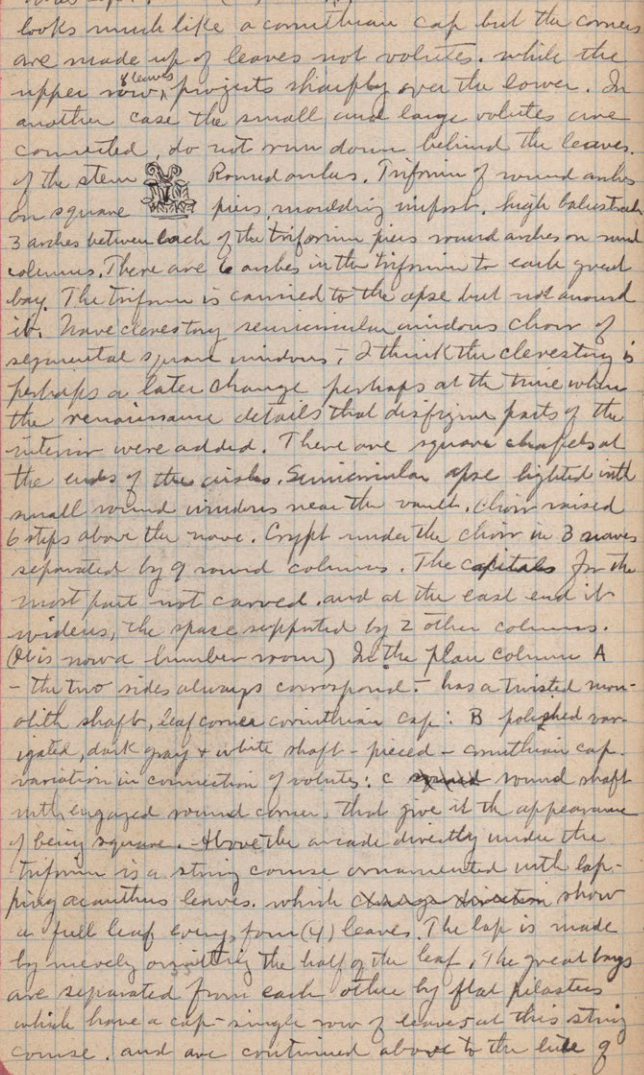 looks much like a corinthian cap but the corners
are made up of leaves not volutes. while the
upper row, 8 leaves projects sharply over the lower. In
another case the small and large volutes are
connected, do not run down behind the leaves.
of the stem Round arches. Triforium of round arches
on square piers, moulding impost. high balustrade
3 arches between each of the triforium piers round arches on small
columns. There are 6 arches in the triforium to each great
bay. The triforium is carried to the apse but not around
it. Nave clerestory semicircular windows choir of
segmental square windows, - I think the clerestory is
perhaps a later change perhaps at the time when
the renaissance details that disfigure parts of the
interior were added. There are square chapels at
the ends of the aisles. Semicircular apse lighted with
small round windows near the vault. Choir raised
6 steps above the nave. Crypt under the choir in 3 naves
separated by 9 round columns. The capitals for the
most part not carved. and at the east end it
widens, the space supported by 2 other columns.
(It is now a lumber room) In the plan column A
- the two sides always correspond - has a twisted mon-
olith shaft, leaf corner corinthian cap: B polished var-
igated, dark gray & white shaft - pieced - corinthian cap.
variation in connection of volutes: C round shaft
with engaged round corner, that give it the appearance
of being square. - Above the arcade directly under the
triforium is a string course ornamented with lap-
ping acanthus leaves. which change direction show
a full leaf every four (4) leaves. The lap is made
by merely omitting the half of the leaf. The great bays
are separated from each other by flat pilasters
which have a cap - single row of leaves at this string
course. and are continued above to the line of